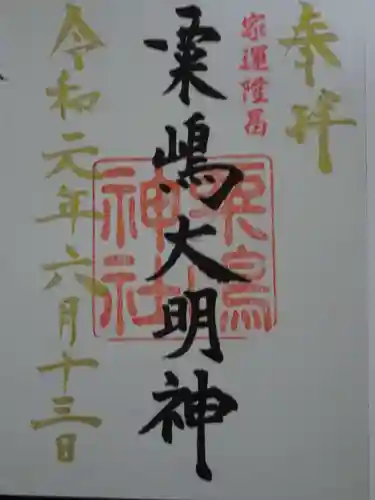 奉拝
家運隆昌
粟嶋大明神
粟島神社
令和元年六月十三日